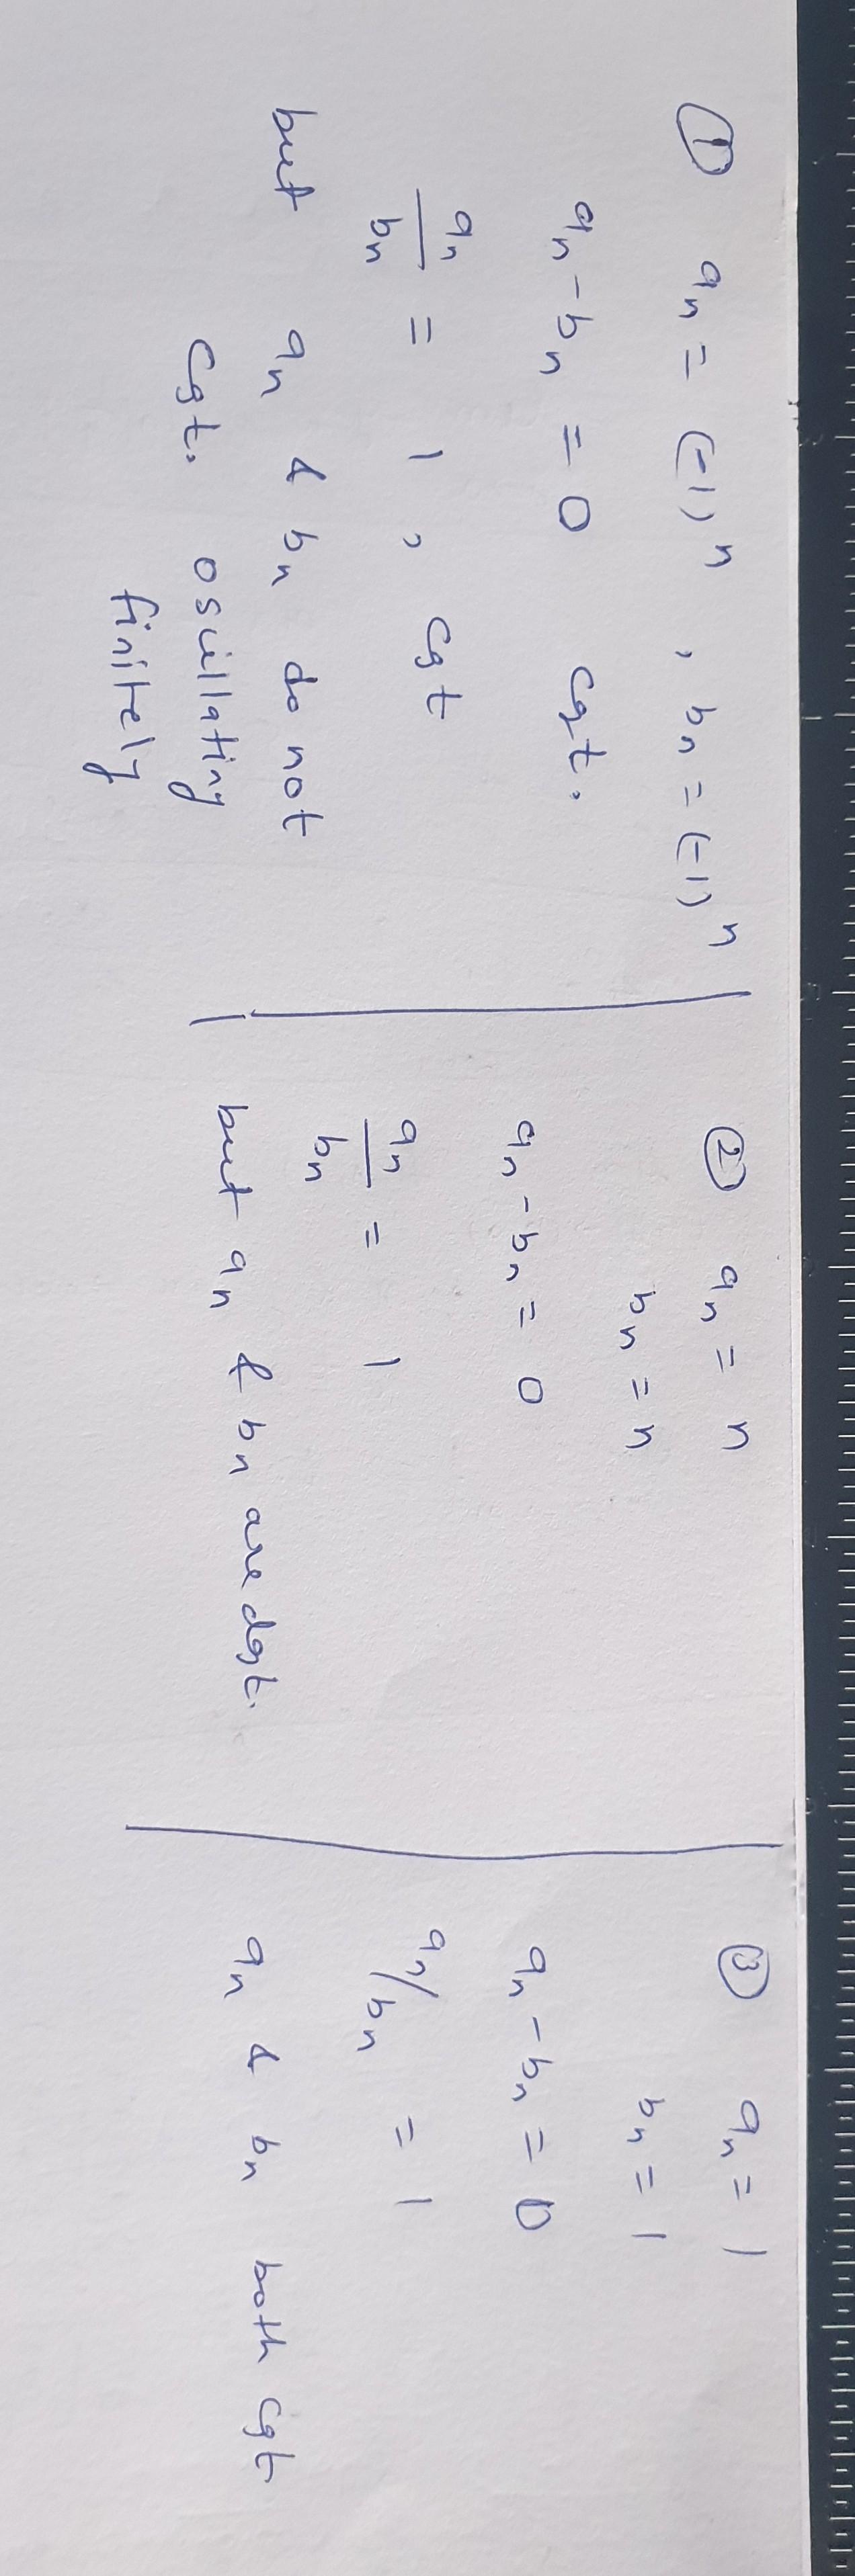 ① aₙ = (-1)ⁿ , bₙ = (-1)ⁿ
aₙ - bₙ = 0 cgt.
aₙ/bₙ = 1 , cgt
but aₙ & bₙ do not
cgt. oscillating
finitely
② aₙ = n
bₙ = n
aₙ - bₙ = 0
aₙ/bₙ = 1
but aₙ & bₙ are dgt.
③ aₙ = 1
bₙ = 1
aₙ - bₙ = 0
aₙ/bₙ = 1
aₙ & bₙ both cgt